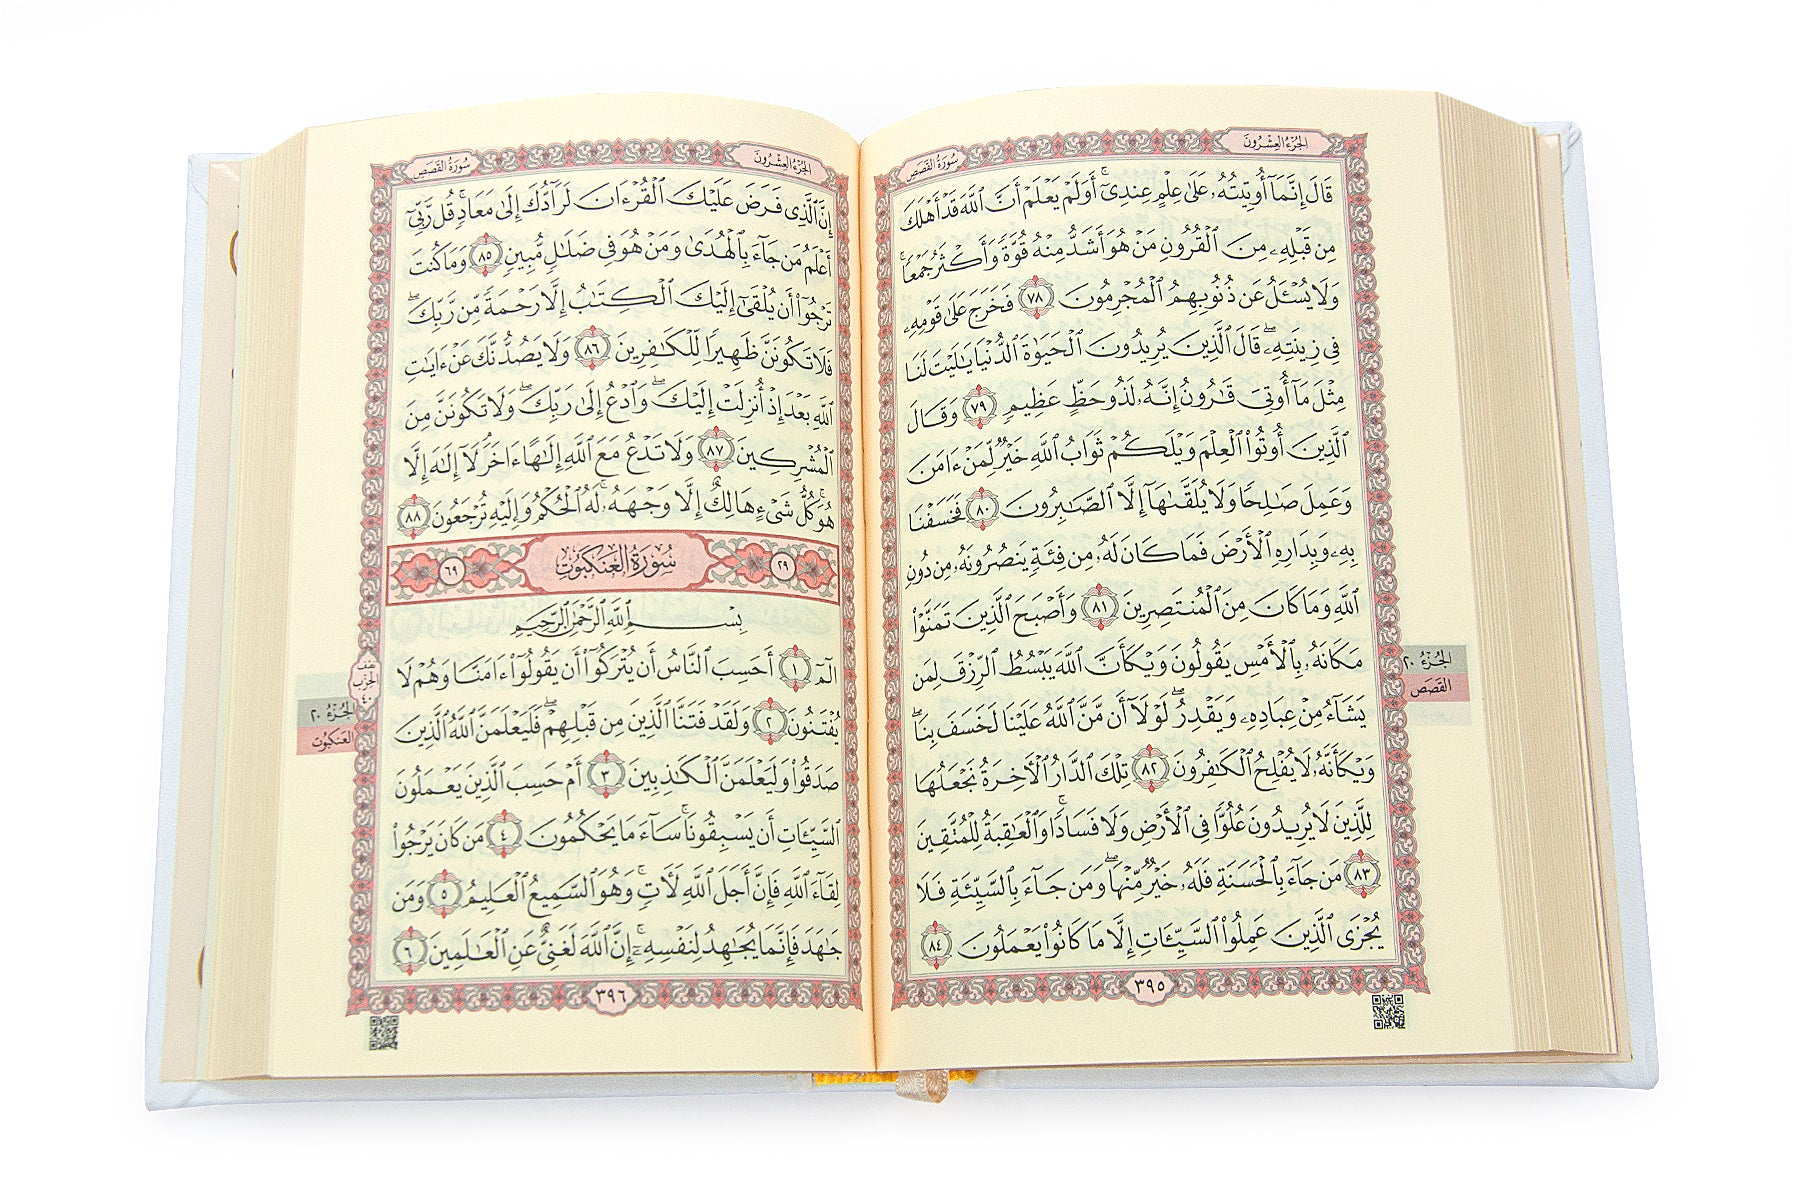 الجزء العشرون
سورة القصص
قَالَ إِنَّمَآ أُوتِيتُهُۥ عَلَىٰ عِلْمٍ عِندِىٓ ۚ أَوَلَمْ يَعْلَمْ أَنَّ ٱللَّهَ قَدْ أَهْلَكَ
مِن قَبْلِهِۦ مِنَ ٱلْقُرُونِ مَنْ هُوَ أَشَدُّ مِنْهُ قُوَّةً وَأَكْثَرُ جَمْعًا ۚ
وَلَا يُسْـَٔلُ عَن ذُنُوبِهِمُ ٱلْمُجْرِمُونَ ٧٨ فَخَرَجَ عَلَىٰ قَوْمِهِۦ
فِى زِينَتِهِۦ ۖ قَالَ ٱلَّذِينَ يُرِيدُونَ ٱلْحَيَوٰةَ ٱلدُّنْيَا يَـٰلَيْتَ لَنَا
مِثْلَ مَآ أُوتِىَ قَـٰرُونُ إِنَّهُۥ لَذُو حَظٍّ عَظِيمٍ ٧٩ وَقَالَ
ٱلَّذِينَ أُوتُوا۟ ٱلْعِلْمَ وَيْلَكُمْ ثَوَابُ ٱللَّهِ خَيْرٌ لِّمَنْ ءَامَنَ
وَعَمِلَ صَـٰلِحًا وَلَا يُلَقَّىٰهَآ إِلَّا ٱلصَّـٰبِرُونَ ٨٠ فَخَسَفْنَا
بِهِۦ وَبِدَارِهِ ٱلْأَرْضَ فَمَا كَانَ لَهُۥ مِن فِئَةٍ يَنصُرُونَهُۥ مِن دُونِ
ٱللَّهِ وَمَا كَانَ مِنَ ٱلْمُنتَصِرِينَ ٨١ وَأَصْبَحَ ٱلَّذِينَ تَمَنَّوْا۟
مَكَانَهُۥ بِٱلْأَمْسِ يَقُولُونَ وَيْكَأَنَّ ٱللَّهَ يَبْسُطُ ٱلرِّزْقَ لِمَن
يَشَآءُ مِنْ عِبَادِهِۦ وَيَقْدِرُ ۖ لَوْلَآ أَن مَّنَّ ٱللَّهُ عَلَيْنَا لَخَسَفَ بِنَا ۖ
وَيْكَأَنَّهُۥ لَا يُفْلِحُ ٱلْكَـٰفِرُونَ ٨٢ تِلْكَ ٱلدَّارُ ٱلْـَٔاخِرَةُ نَجْعَلُهَا
لِلَّذِينَ لَا يُرِيدُونَ عُلُوًّا فِى ٱلْأَرْضِ وَلَا فَسَادًا ۚ وَٱلْعَـٰقِبَةُ لِلْمُتَّقِينَ
٨٣ مَن جَآءَ بِٱلْحَسَنَةِ فَلَهُۥ خَيْرٌ مِّنْهَا ۖ وَمَن جَآءَ بِٱلسَّيِّئَةِ فَلَا
يُجْزَى ٱلَّذِينَ عَمِلُوا۟ ٱلسَّيِّـَٔاتِ إِلَّا مَا كَانُوا۟ يَعْمَلُونَ ٨٤
الجزء ٢٠
القصص
٣٩٥
الجزء العشرون
سورة القصص
إِنَّ ٱلَّذِى فَرَضَ عَلَيْكَ ٱلْقُرْءَانَ لَرَآدُّكَ إِلَىٰ مَعَادٍ ۚ قُل رَّبِّىٓ
أَعْلَمُ مَن جَآءَ بِٱلْهُدَىٰ وَمَنْ هُوَ فِى ضَلَـٰلٍ مُّبِينٍ ٨٥ وَمَا كُنتَ
تَرْجُوٓا۟ أَن يُلْقَىٰٓ إِلَيْكَ ٱلْكِتَـٰبُ إِلَّا رَحْمَةً مِّن رَّبِّكَ ۖ
فَلَا تَكُونَنَّ ظَهِيرًا لِّلْكَـٰفِرِينَ ٨٦ وَلَا يَصُدُّنَّكَ عَنْ ءَايَـٰتِ
ٱللَّهِ بَعْدَ إِذْ أُنزِلَتْ إِلَيْكَ ۖ وَٱدْعُ إِلَىٰ رَبِّكَ ۖ وَلَا تَكُونَنَّ مِنَ
ٱلْمُشْرِكِينَ ٨٧ وَلَا تَدْعُ مَعَ ٱللَّهِ إِلَـٰهًا ءَاخَرَ ۘ لَآ إِلَـٰهَ إِلَّا
هُوَ ۚ كُلُّ شَىْءٍ هَالِكٌ إِلَّا وَجْهَهُۥ ۚ لَهُ ٱلْحُكْمُ وَإِلَيْهِ تُرْجَعُونَ ٨٨
٢٩ سورة العنكبوت ٦٩
بِسْمِ ٱللَّهِ ٱلرَّحْمَـٰنِ ٱلرَّحِيمِ
الٓمٓ ١ أَحَسِبَ ٱلنَّاسُ أَن يُتْرَكُوٓا۟ أَن يَقُولُوٓا۟ ءَامَنَّا وَهُمْ لَا
يُفْتَنُونَ ٢ وَلَقَدْ فَتَنَّا ٱلَّذِينَ مِن قَبْلِهِمْ ۖ فَلَيَعْلَمَنَّ ٱللَّهُ ٱلَّذِينَ
صَدَقُوا۟ وَلَيَعْلَمَنَّ ٱلْكَـٰذِبِينَ ٣ أَمْ حَسِبَ ٱلَّذِينَ يَعْمَلُونَ
ٱلسَّيِّـَٔاتِ أَن يَسْبِقُونَا ۚ سَآءَ مَا يَحْكُمُونَ ٤ مَن كَانَ يَرْجُوا۟
لِقَآءَ ٱللَّهِ فَإِنَّ أَجَلَ ٱللَّهِ لَـَٔاتٍ ۚ وَهُوَ ٱلسَّمِيعُ ٱلْعَلِيمُ ٥ وَمَن
جَـٰهَدَ فَإِنَّمَا يُجَـٰهِدُ لِنَفْسِهِۦٓ ۚ إِنَّ ٱللَّهَ لَغَنِىٌّ عَنِ ٱلْعَـٰلَمِينَ ٦
نصف
الحزب
٤٠
الجزء ٢٠
العنكبوت
٣٩٦